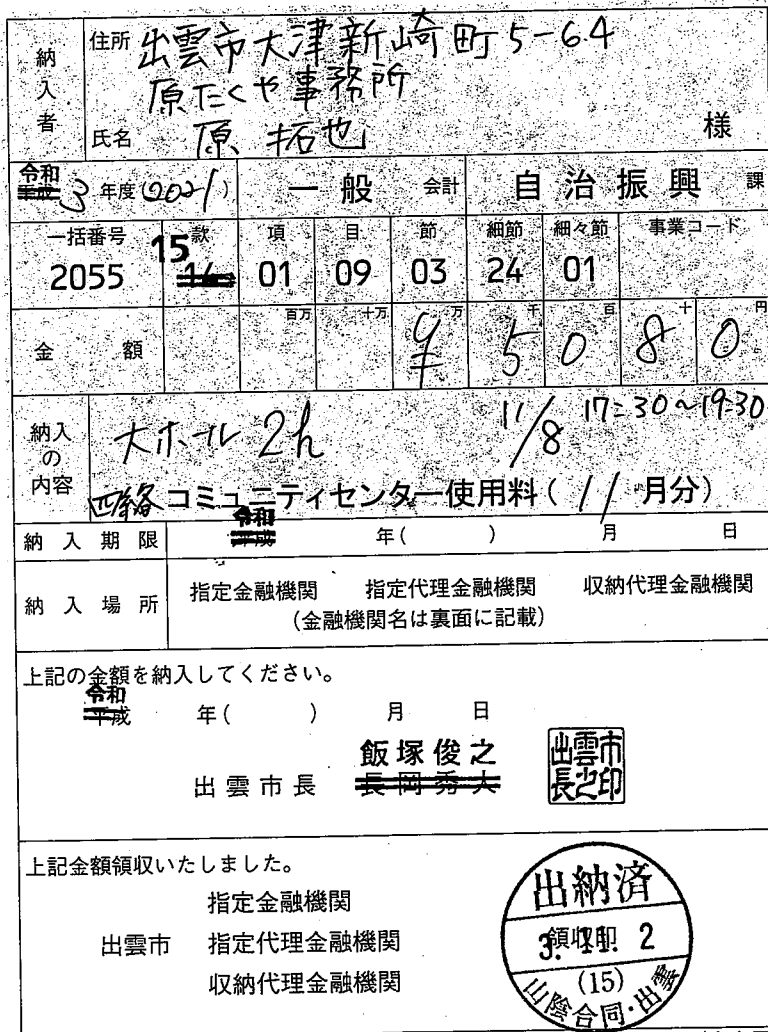 納入者
住所 出雲市大津新崎町5-64
原たくや事務所
氏名 原 拓也 様
令和 平成 3 年度(2021) 一般 会計 自治振興 課
一括番号 款 項 目 節 細節 細々節 事業コード
2055 15 14 01 09 03 24 01
百万 十万 万 千 百 十 円
金額 ¥ 5 0 8 0
納入の内容
大ホール 2h 11/8 17:30~19:30
四絡 コミュニティセンター使用料(11月分)
納入期限 令和 平成 年( ) 月 日
納入場所 指定金融機関 指定代理金融機関 収納代理金融機関
(金融機関名は裏面に記載)
上記の金額を納入してください。
令和 平成 年( ) 月 日
飯塚俊之
出雲市長 長岡秀人
出雲市長之印
上記金額領収いたしました。
指定金融機関
出雲市 指定代理金融機関
収納代理金融機関
出納済
領収印
3.11.2
(15)
山陰合同・出雲